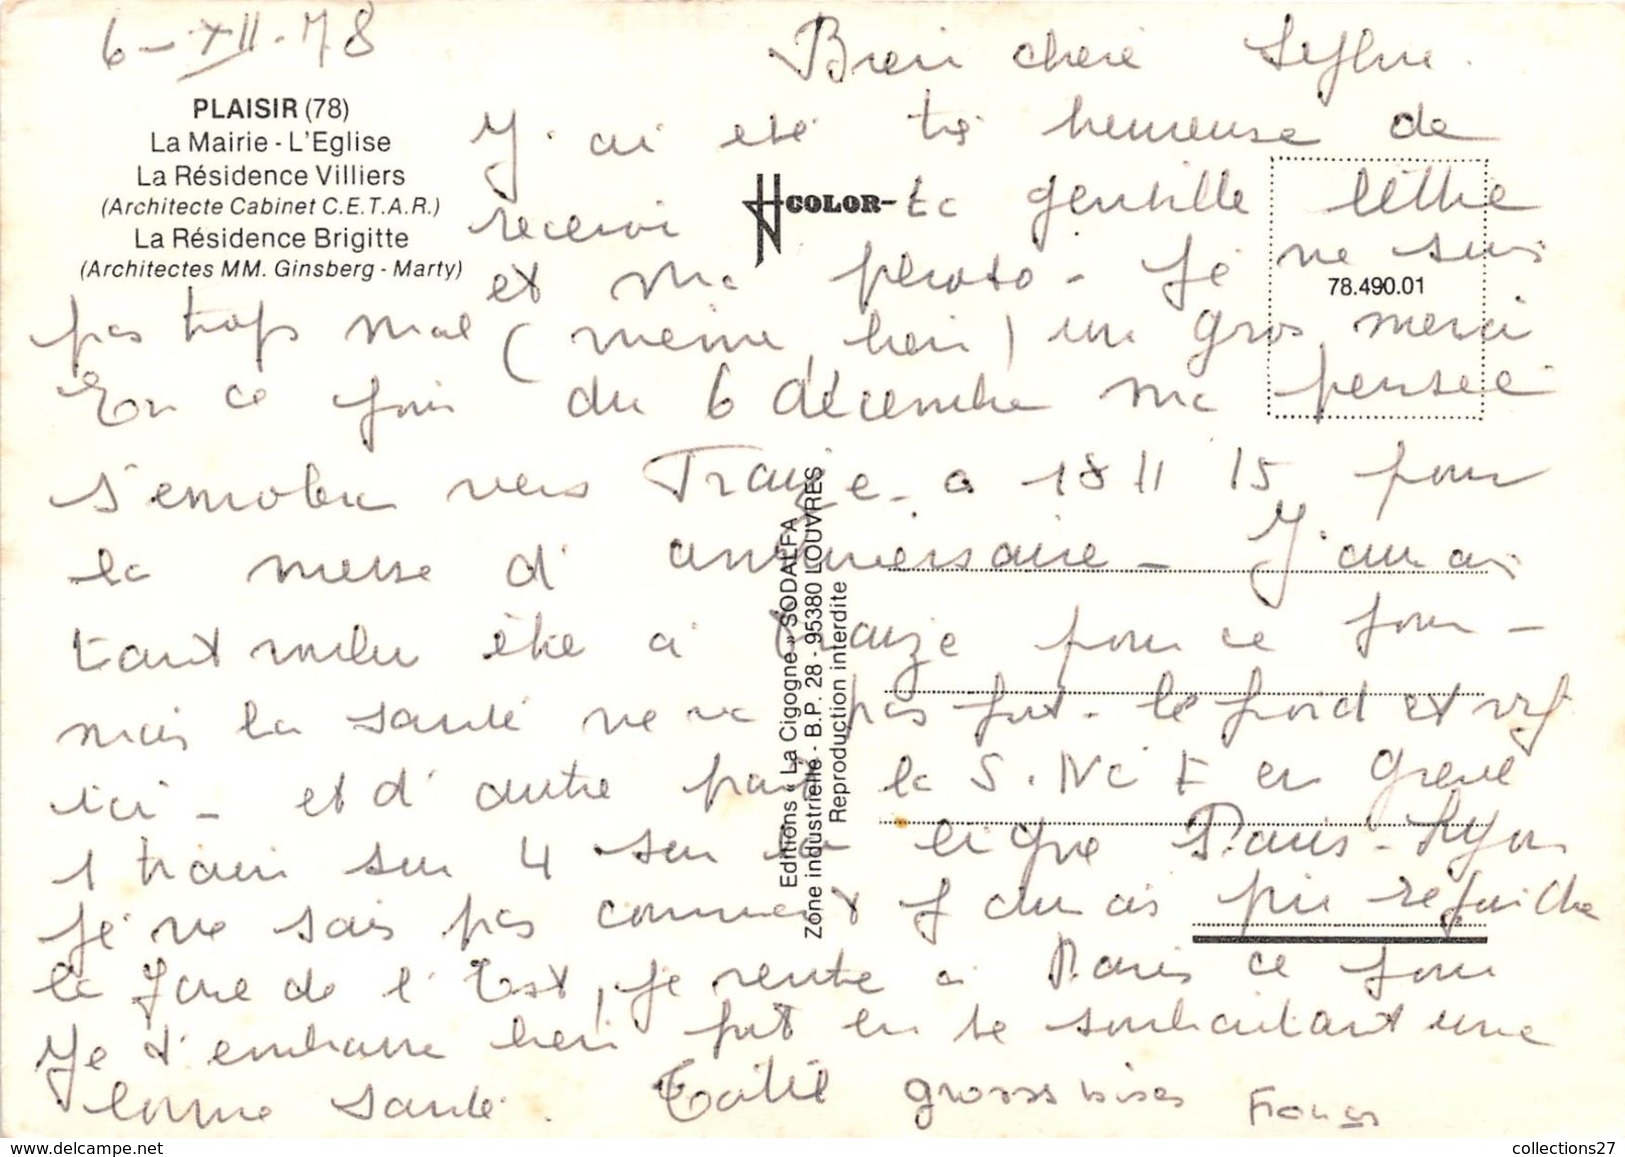 6 - XII - 78
PLAISIR (78)
La Mairie - L'Eglise
La Résidence Villiers
(Architecte Cabinet C.E.T.A.R.)
La Résidence Brigitte
(Architectes MM. Ginsberg - Marty)
COLOR
78.490.01
Editions « La Cigogne » SODALFA
Zone industrielle - B.P. 28 - 95380 LOUVRES
Reproduction interdite
Bien chere
J'ai été trè heureuse de
recevoir ta gentille lettre
et ma photo - Je ne suis
pas trop mal (meme bien) un gros merci
En ce jour du 6 décembre ma pensée
s'envolera vers Trauze - a 18 H 15 pour
la messe d'anniversaire - J'aurais
tant voulu être à Trauze pour ce jour -
mais la santé ne va pas fort - le froid est vif
ici - et d'autre part la S.NCF en greve
1 train sur 4 sur la ligne Paris - Lyon
Je ne sais pas comment j'aurais pu rejoindre
la gare de l'Est, je rentre à Paris ce jour
Je t'embrasse bien fort en te souhaitant une
bonne santé. Tatie grosses bises